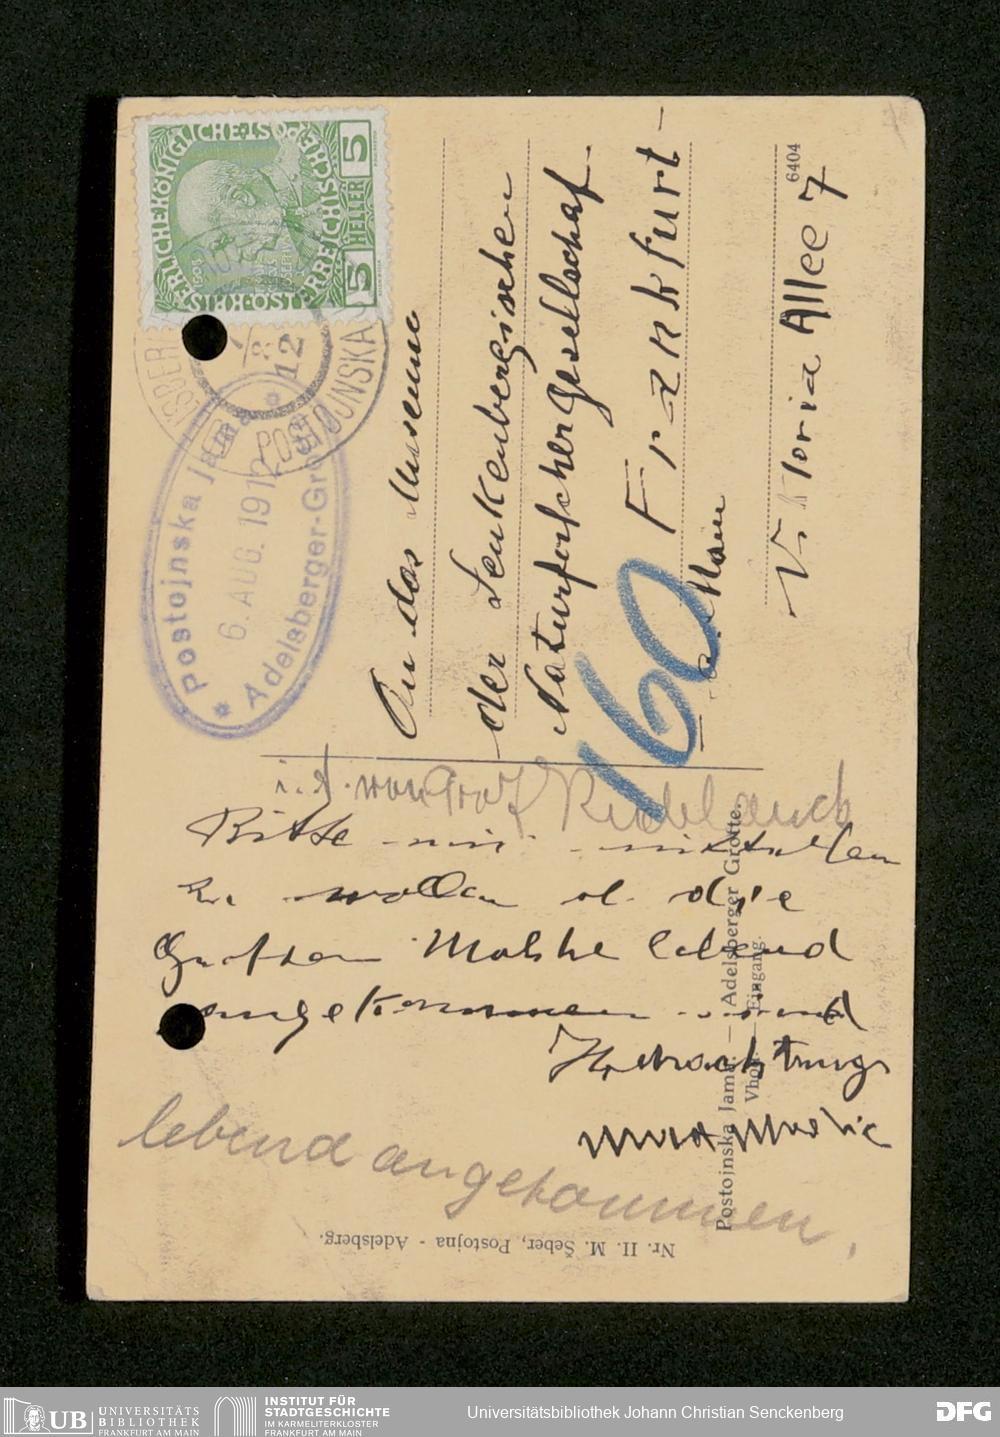 KAISERLICHE KÖNIGLICHE
ÖSTERREICHISCHE POST
5 HELLER 5
1908
12
POSTOJNSKA
Postojnska Jama
6. AUG. 1912
Adelsberger-Grotte
An das Museum
der Senkenbergischen
Naturforscher Gesellschaf.
Frankfurt-
a. Main
Viktoria Allee 7
6404
160
i. A. von Graf
Bitte mir mitteilen
zu wollen ob die
Grotten Molche lebend
angekommen sind
Hochachtungs
lebend angekommen.
Postojnska Jama. — Adelsberger Grotte.
Vhod. — Eingang.
Nr. II. M. Šeber, Postojna - Adelsberg.
UB UNIVERSITÄTS
BIBLIOTHEK
FRANKFURT AM MAIN
INSTITUT FÜR
STADTGESCHICHTE
IM KARMELITERKLOSTER
FRANKFURT AM MAIN
Universitätsbibliothek Johann Christian Senckenberg
DFG